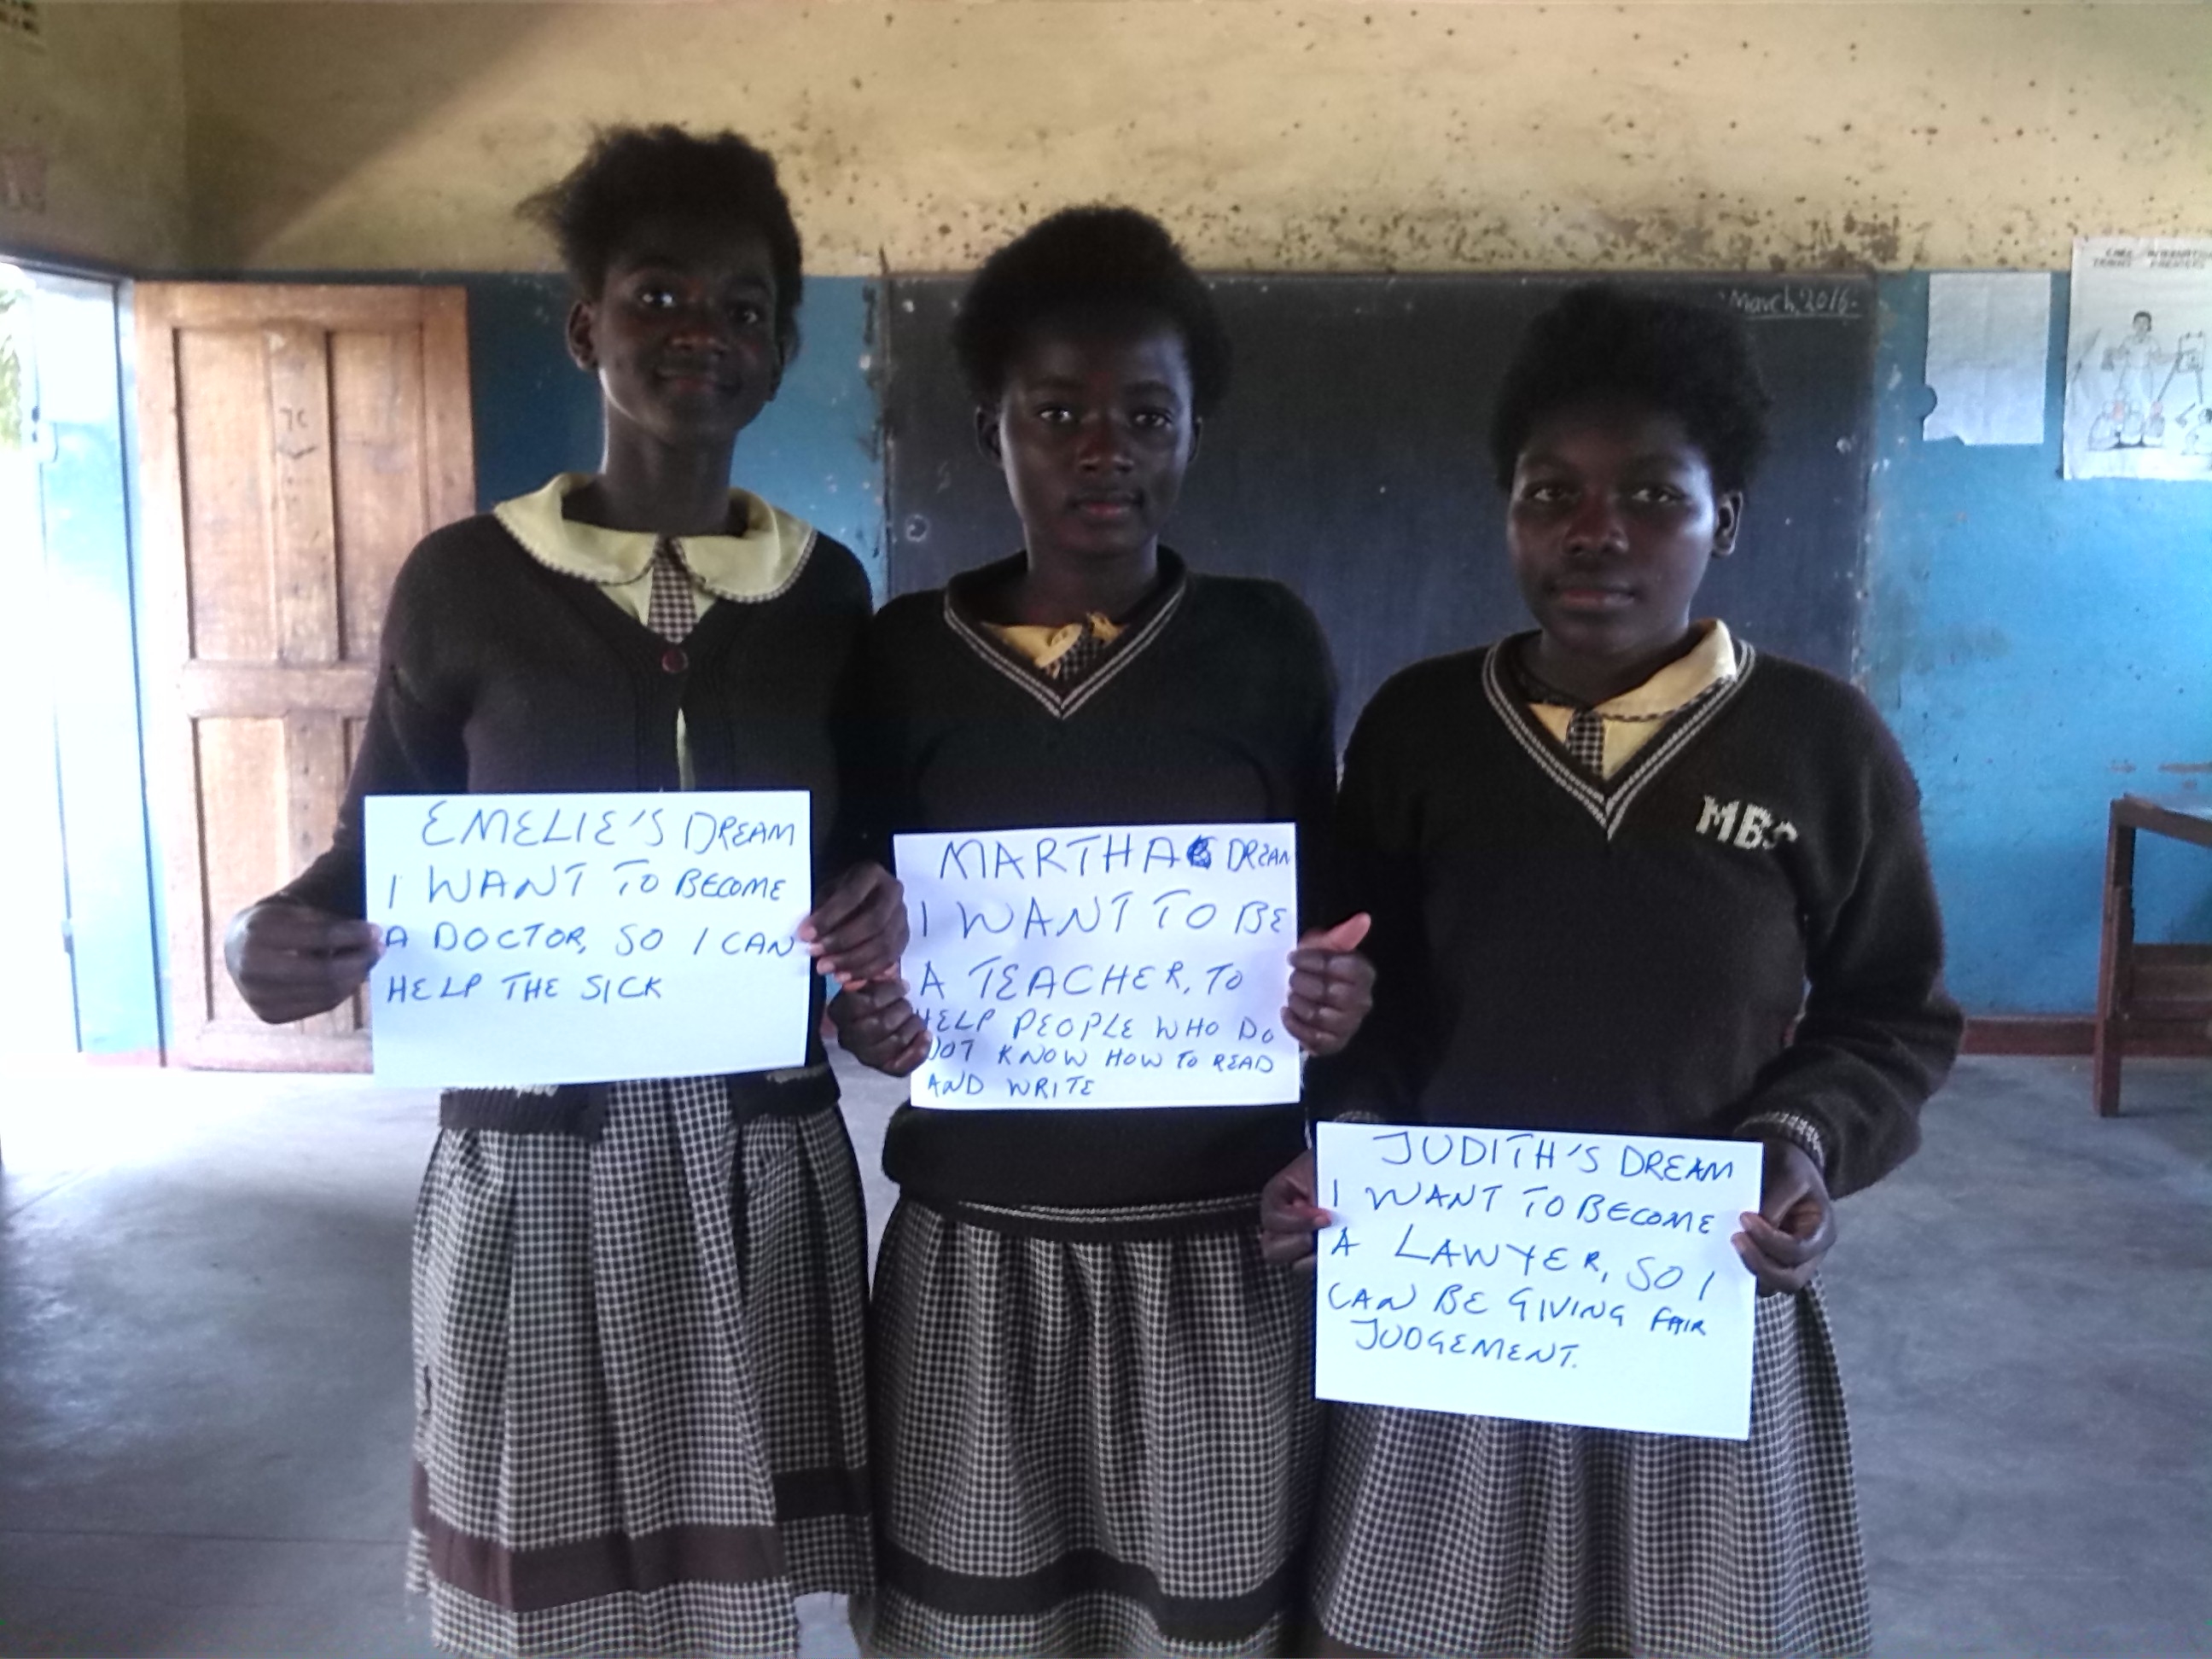 March, 2016.
EMELIE'S DREAM
I WANT TO BECOME
A DOCTOR, SO I CAN
HELP THE SICK
MARTHAS DREAM
I WANT TO BE
A TEACHER, TO
HELP PEOPLE WHO DO
NOT KNOW HOW TO READ
AND WRITE
MBS
JUDITH'S DREAM
I WANT TO BECOME
A LAWYER, SO I
CAN BE GIVING FAIR
JUDGEMENT.